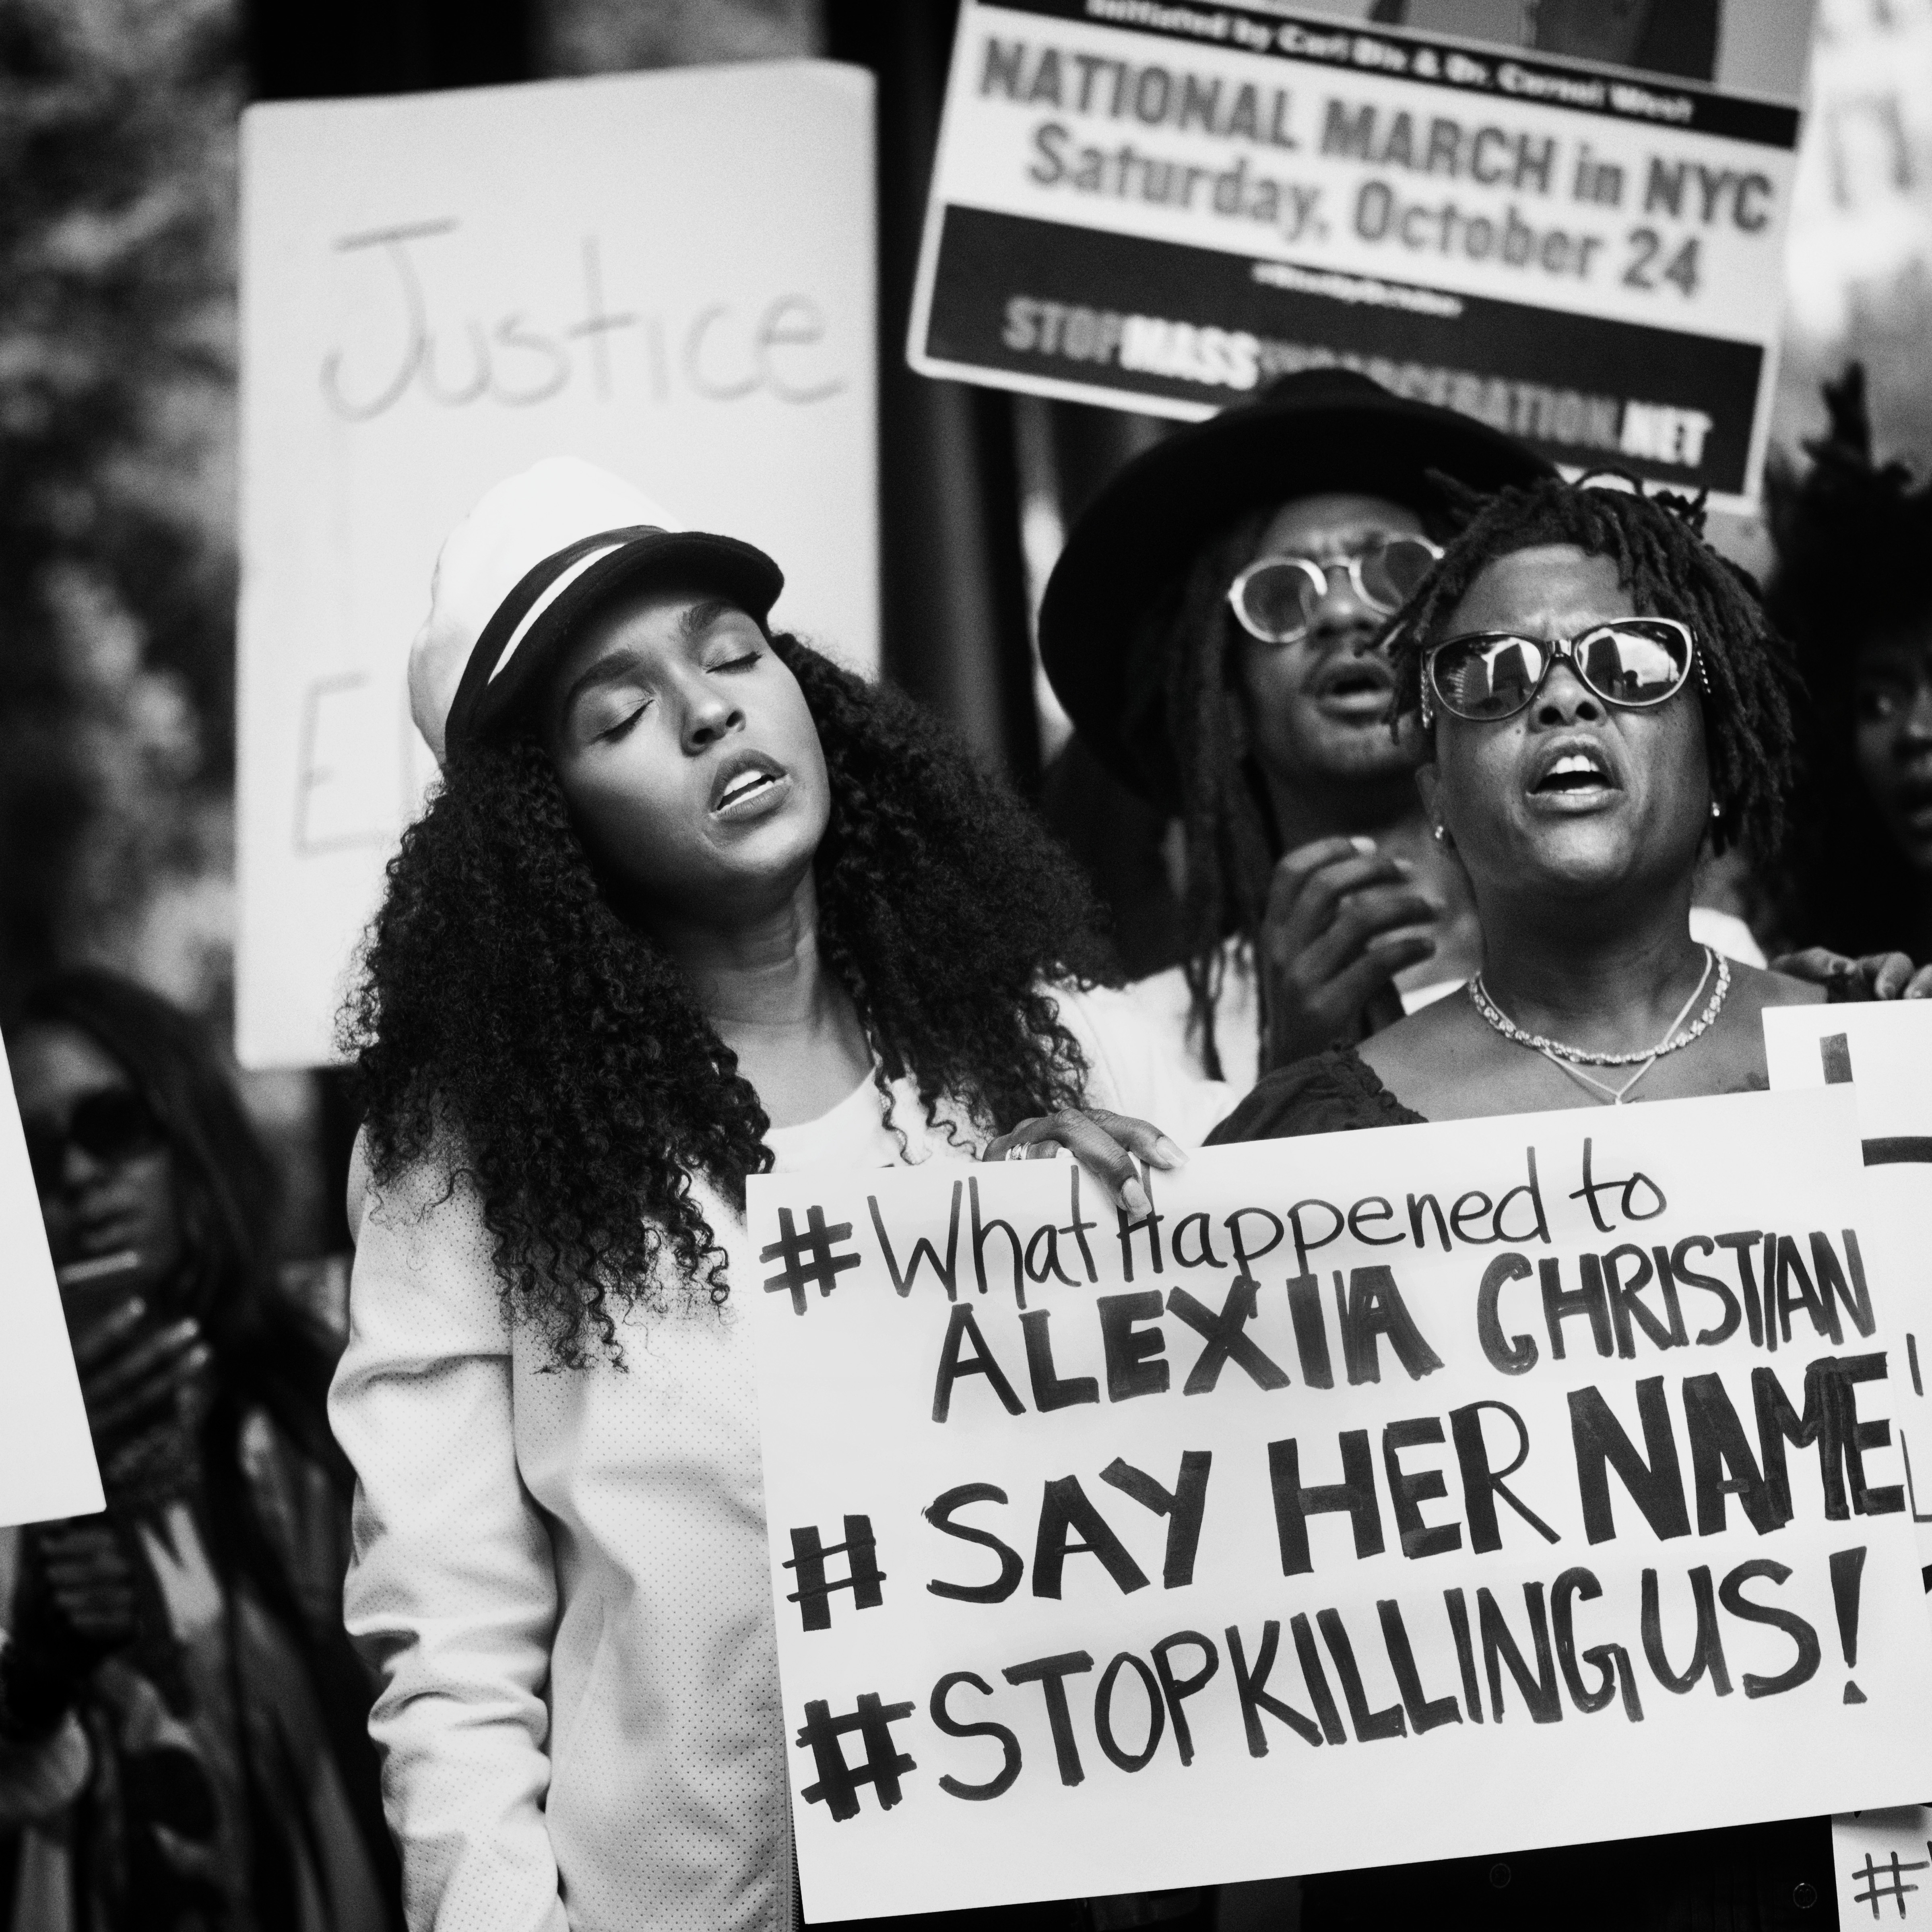 Initiated by Carl Dix & Dr. Cornel West
NATIONAL MARCH in NYC
Saturday, October 24
STOPMASSINCARCERATION.NET
Justice
#WhatHappened to
ALEXIA CHRISTIAN
# SAY HER NAME
#STOPKILLINGUS!
#